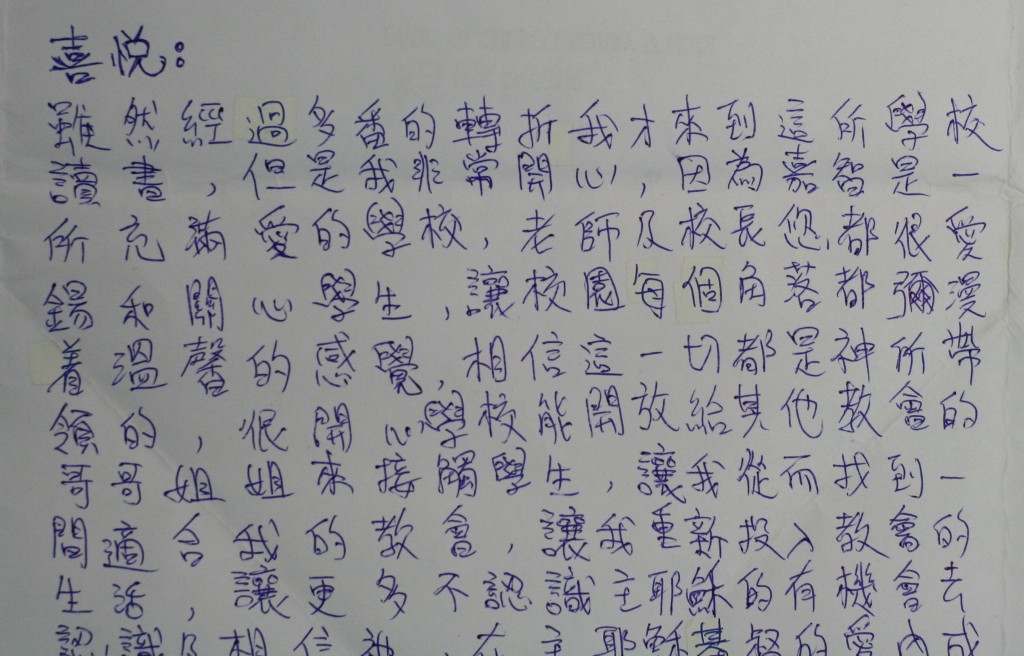 喜悅：
雖然經過多番的轉折我才來到這所學校
讀書，但是我非常開心，因為嘉智是一
所充滿愛的學校，老師及校長您都很愛
錫和關心學生，讓校園每個角落都彌漫
着溫馨的感覺，相信這一切都是神所帶
領的，很開心學校能開放給其他教會的
哥哥姐姐來接觸學生，讓我從而找到一
間適合我的教會，讓我重新投入教會的
生活，讓更多不認識主耶穌的有機會去
認識及相信祂，在主耶穌基督的愛內成